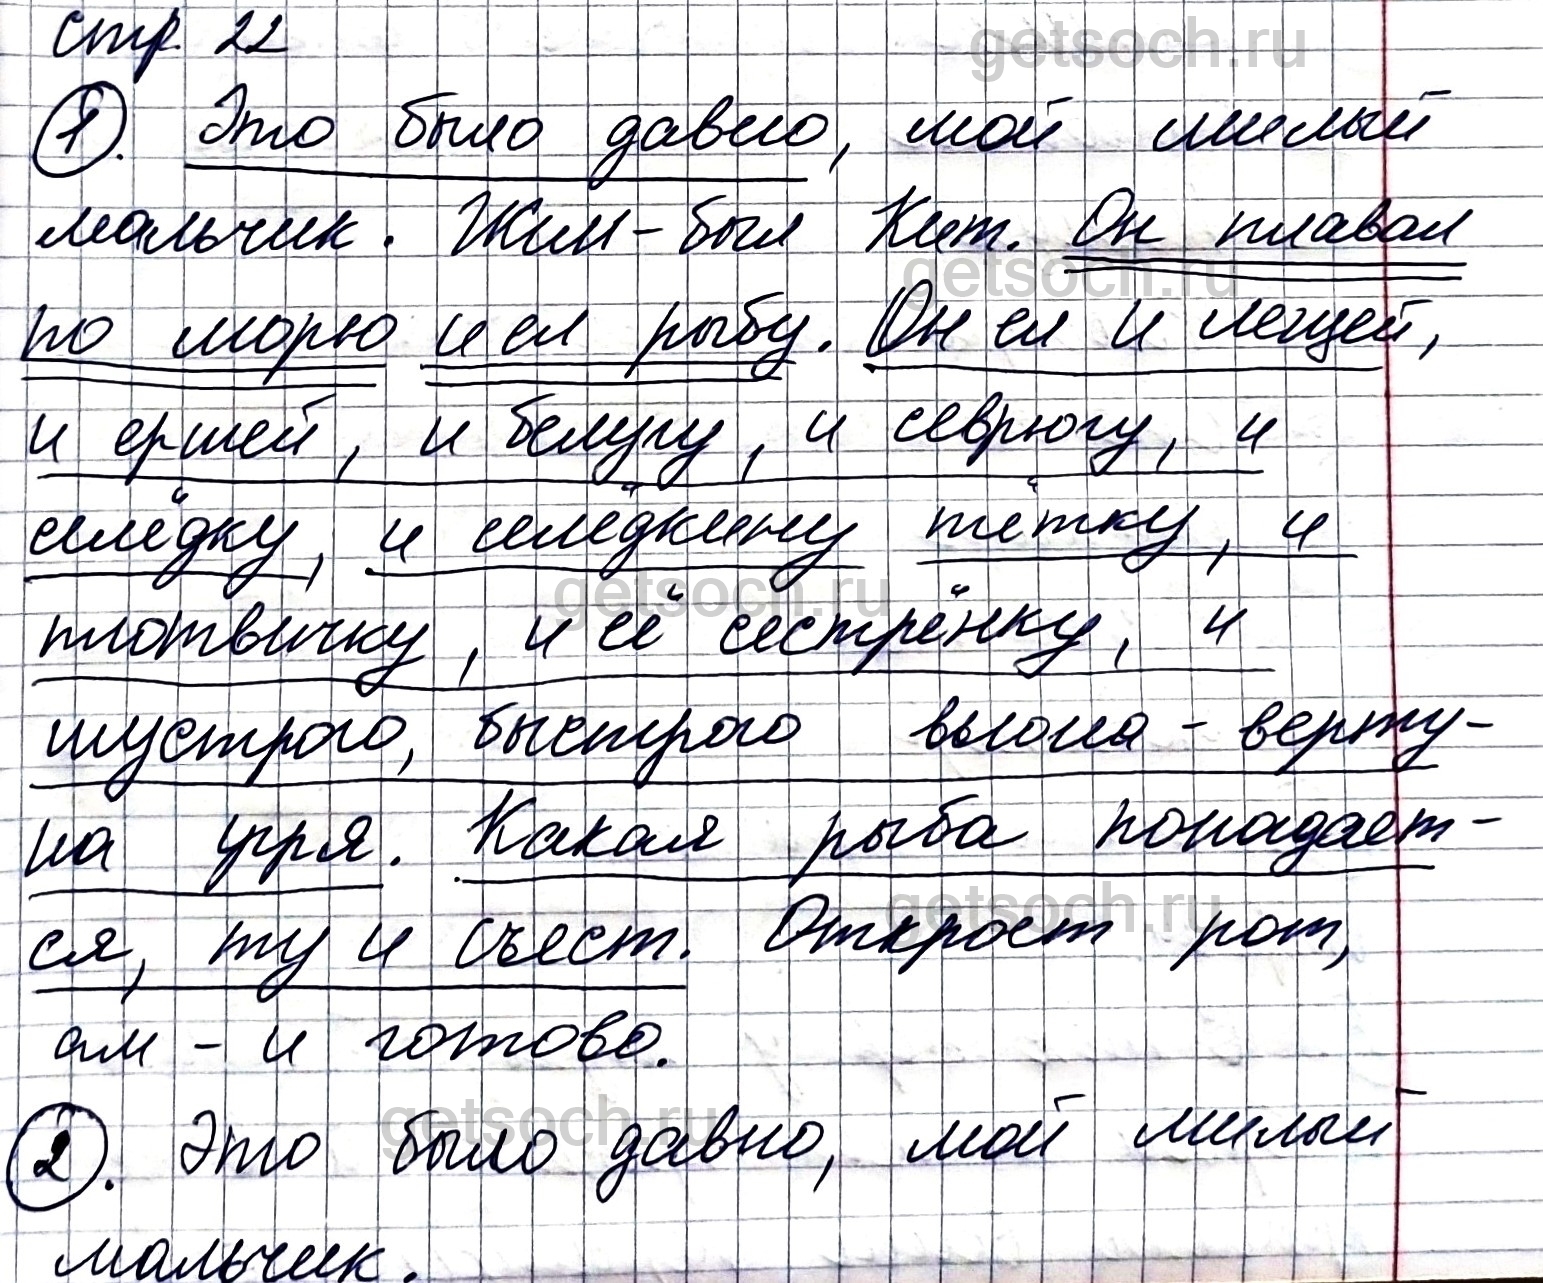 стр 22
getsoch.ru
1. Это было давно, мой милый
мальчик. Жил-был Кит. Он плавал
getsoch.ru
по морю и ел рыбу. Он ел и лещей,
и ершей, и белугу, и севрюгу, и
селёдку, и селёдкину тётку, и
getsoch.ru
плотвичку, и её сестрёнку, и
шустрого, быстрого вьюна-верту-
на угря. Какая рыба попадает-
getsoch.ru
ся, ту и съест. Откроет рот,
ам - и готово.
getsoch.ru
2. Это было давно, мой милый
мальчик.